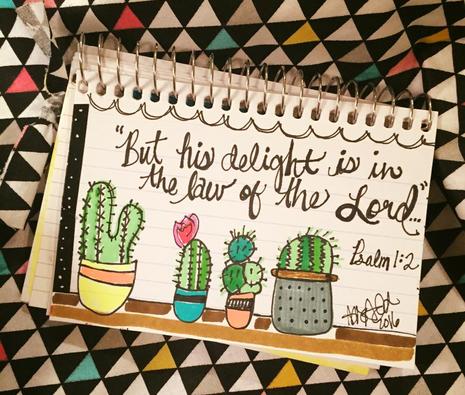 "But his delight is in
the law of the Lord..."
Psalm 1:2
2016